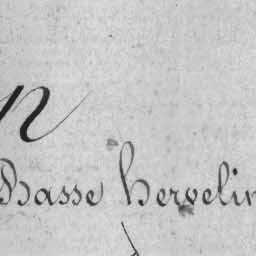 n
Basse hervelin